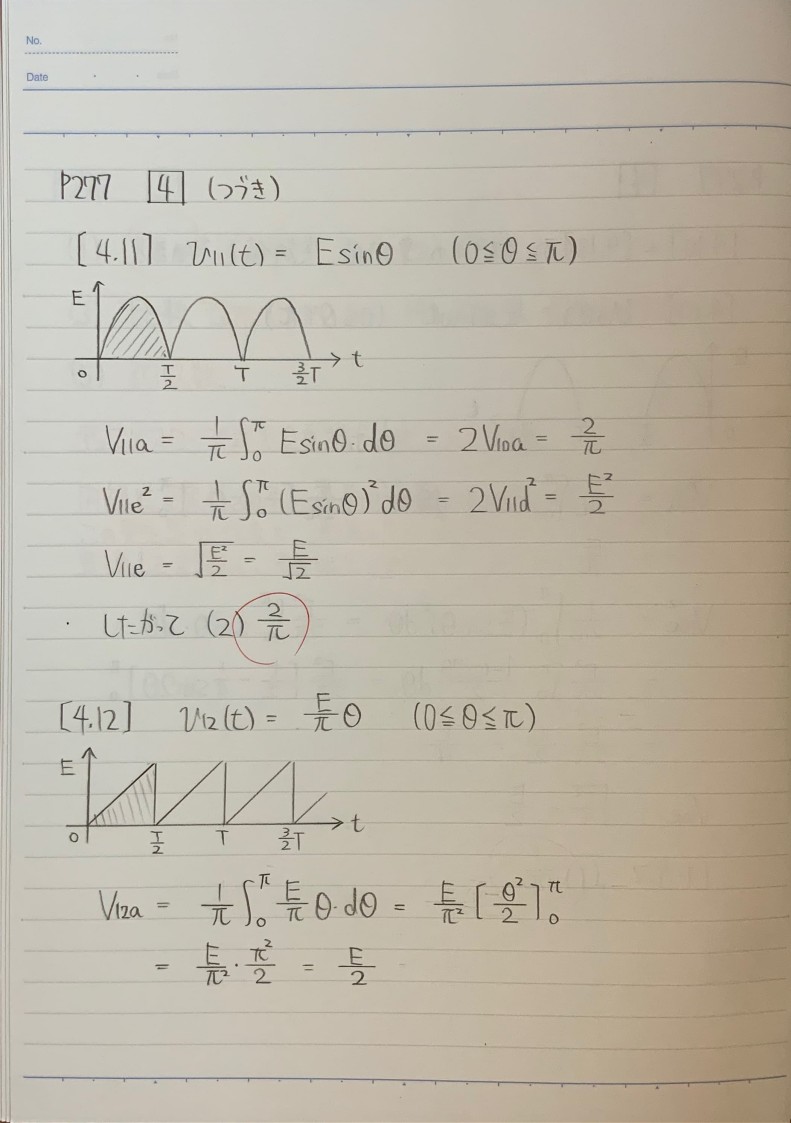 No.
Date
P277 [4] (つづき)
[4.11] v11(t) = E sinθ (0≦θ≦π)
E
0 T/2 T 3/2T t
V11a = 1/π ∫0^π E sinθ・dθ = 2V10a = 2/π
V11e² = 1/π ∫0^π (E sinθ)² dθ = 2V11d² = E²/2
V11e = √(E²/2) = E/√2
・ したがって (2) 2/π
[4.12] v12(t) = E/π θ (0≦θ≦π)
E
0 T/2 T 3/2T t
V12a = 1/π ∫0^π E/π θ・dθ = E/π² [θ²/2]0^π
= E/π²・π²/2 = E/2